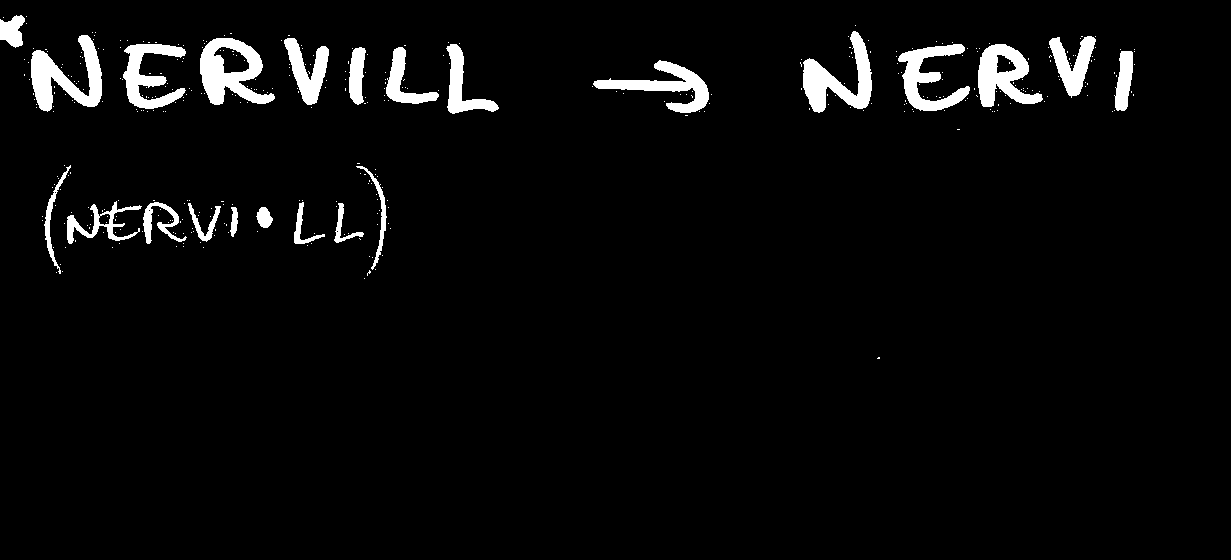 *NERVILL → NERVI
(NERVI•LL)